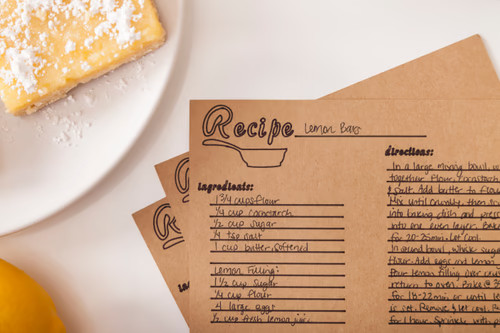 Recipe Lemon Bars
ingredients:
1 3/4 cups flour
1/4 cup cornstarch
1/2 cup sugar
1/4 tsp salt
1 cup butter, softened
Lemon Filling:
1 1/2 cup Sugar
1/4 cup flour
4 large eggs
1/2 cup fresh lemon juice
directions:
In a large mixing bowl, w
together flour, cornstarch
& salt. Add butter to flou
Mix until crumbly, then to
into baking dish and press
into one even layer. Bake
for 20-25min. Let cool.
In another bowl, whisk sug
flour. Add eggs and lemon
Pour lemon filling over cru
return to oven. Bake @ 3
For 18-22min. or until l
is set. Remove & let cool
for 1 hour. Sprinkle with
R
R
in